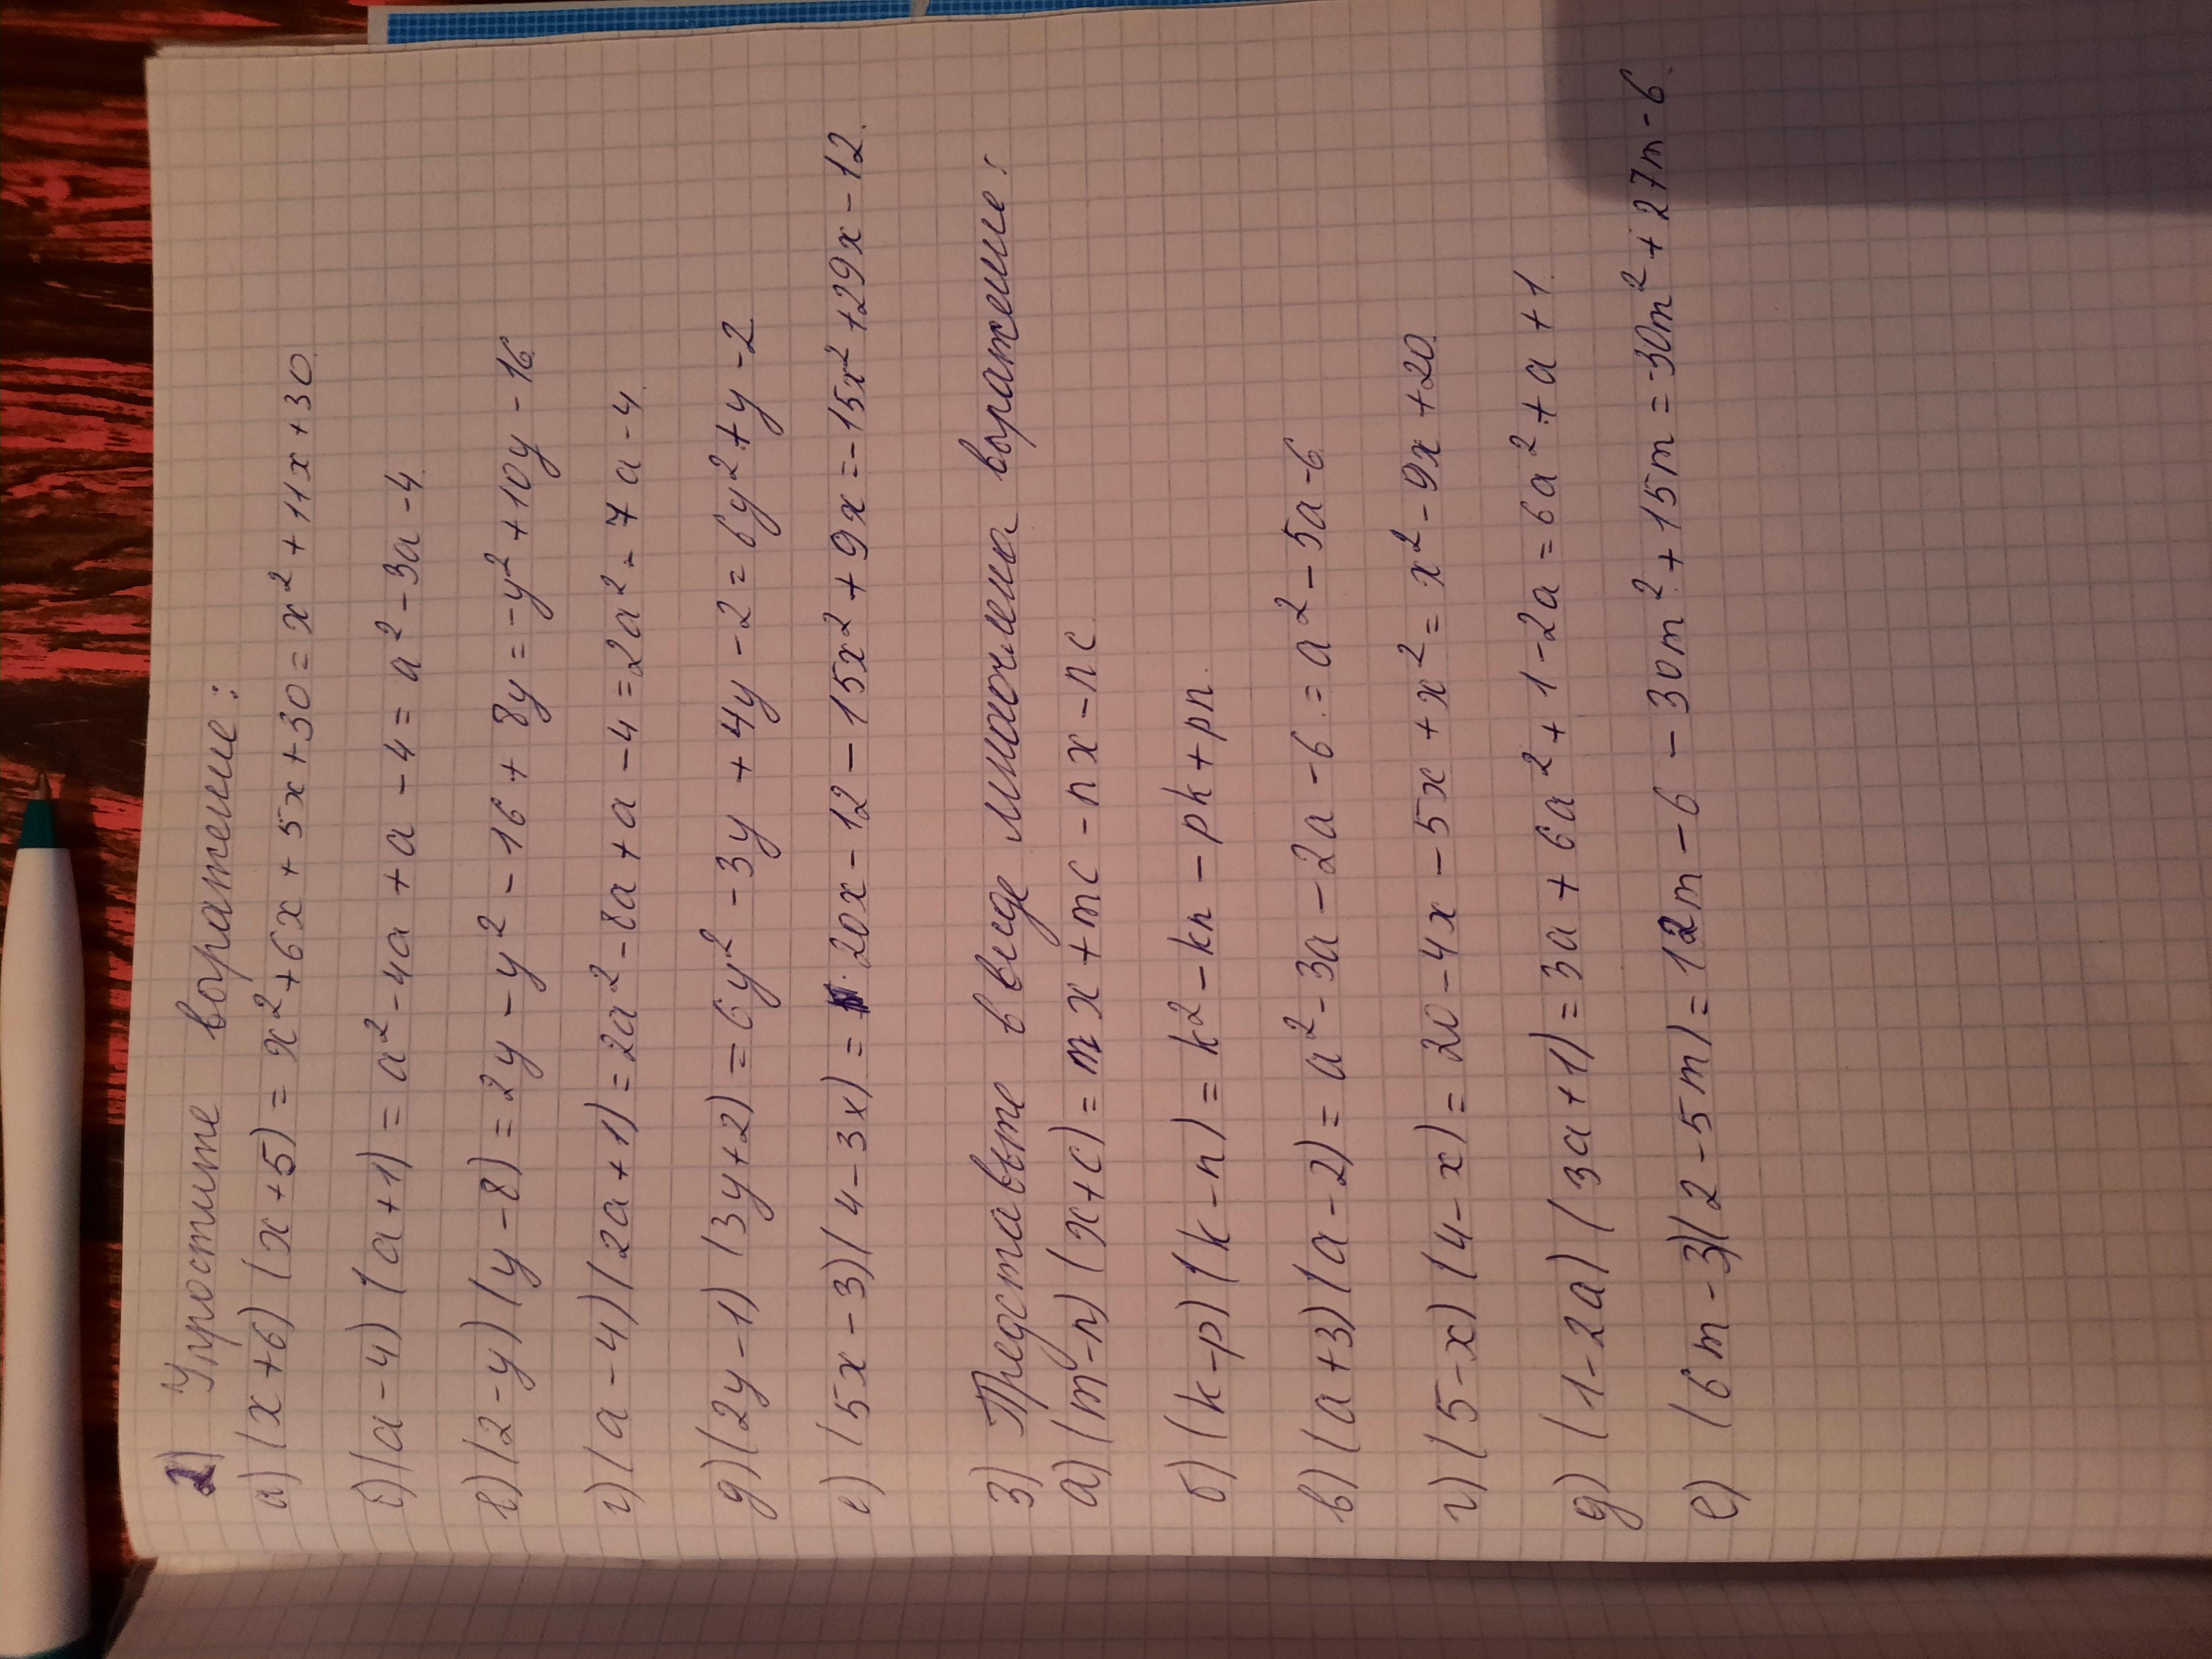 2) Упростите выражение:
а) (x+6) (x+5) = x² + 6x + 5x + 30 = x² + 11x + 30.
б) (a-4) (a+1) = a² - 4a + a - 4 = a² - 3a - 4.
в) (2-y) (y-8) = 2y - y² - 16 + 8y = -y² + 10y - 16.
г) (a-4) (2a+1) = 2a² - 8a + a - 4 = 2a² - 7a - 4.
д) (2y-1) (3y+2) = 6y² - 3y + 4y - 2 = 6y² + y - 2.
е) (5x-3) (4-3x) = 20x - 12 - 15x² + 9x = -15x² + 29x - 12.
3) Представьте в виде многочлена выражение:
а) (m-n) (x+c) = mx + mc - nx - nc.
б) (k-p) (k-n) = k² - kn - pk + pn.
в) (a+3) (a-2) = a² - 3a - 2a - 6 = a² - 5a - 6.
г) (5-x) (4-x) = 20 - 4x - 5x + x² = x² - 9x + 20.
д) (1-2a) (3a+1) = 3a + 6a² + 1 - 2a = 6a² + a + 1.
е) (6m-3)(2-5m) = 12m - 6 - 30m² + 15m = -30m² + 27m - 6.